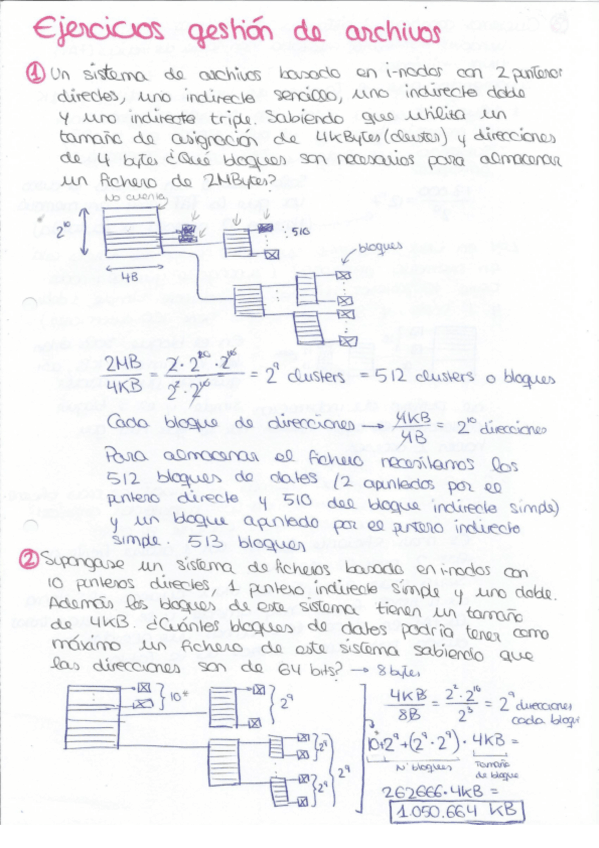 Ejercicios gestión de archivos
① Un sistema de archivos basado en i-nodos con 2 punteros
directos, uno indirecto sencillo, uno indirecto doble
y uno indirecto triple. Sabiendo que utiliza un
tamaño de asignación de 4KBytes (cluster) y direcciones
de 4 bytes ¿Qué bloques son necesarios para almacenar
un fichero de 2MBytes?
No cuenta
2^10
4B
510
bloques
2MB/4KB = 2·2^20/2^2·2^10 = 2^9 clusters = 512 clusters o bloques
Cada bloque de direcciones → 4KB/4B = 2^10 direcciones
Para almacenar el fichero necesitamos los
512 bloques de datos (2 apuntados por el
puntero directo y 510 del bloque indirecto simple)
y un bloque apuntado por el puntero indirecto
simple. 513 bloques
② Supongase un sistema de ficheros basado en i-nodos con
10 punteros directos, 1 puntero indirecto simple y uno doble.
Además los bloques de este sistema tienen un tamaño
de 4KB. ¿Cuántos bloques de datos podría tener como
máximo un fichero de este sistema sabiendo que
las direcciones son de 64 bits? → 8 bytes
10
2^9
2^9
2^9
2^9
4KB/8B = 2^2·2^10/2^3 = 2^9 direcciones
cada bloque
10+2^9+(2^9·2^9)· 4KB =
Nº bloques
Tamaño
de bloque
262666·4KB =
1.050.664 KB